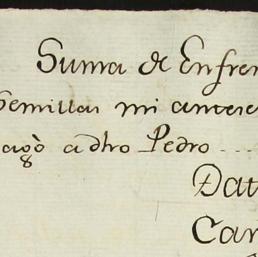 Suma de Enfren
Semillas mi anteces
agò a dho Pedro
Dat
Car